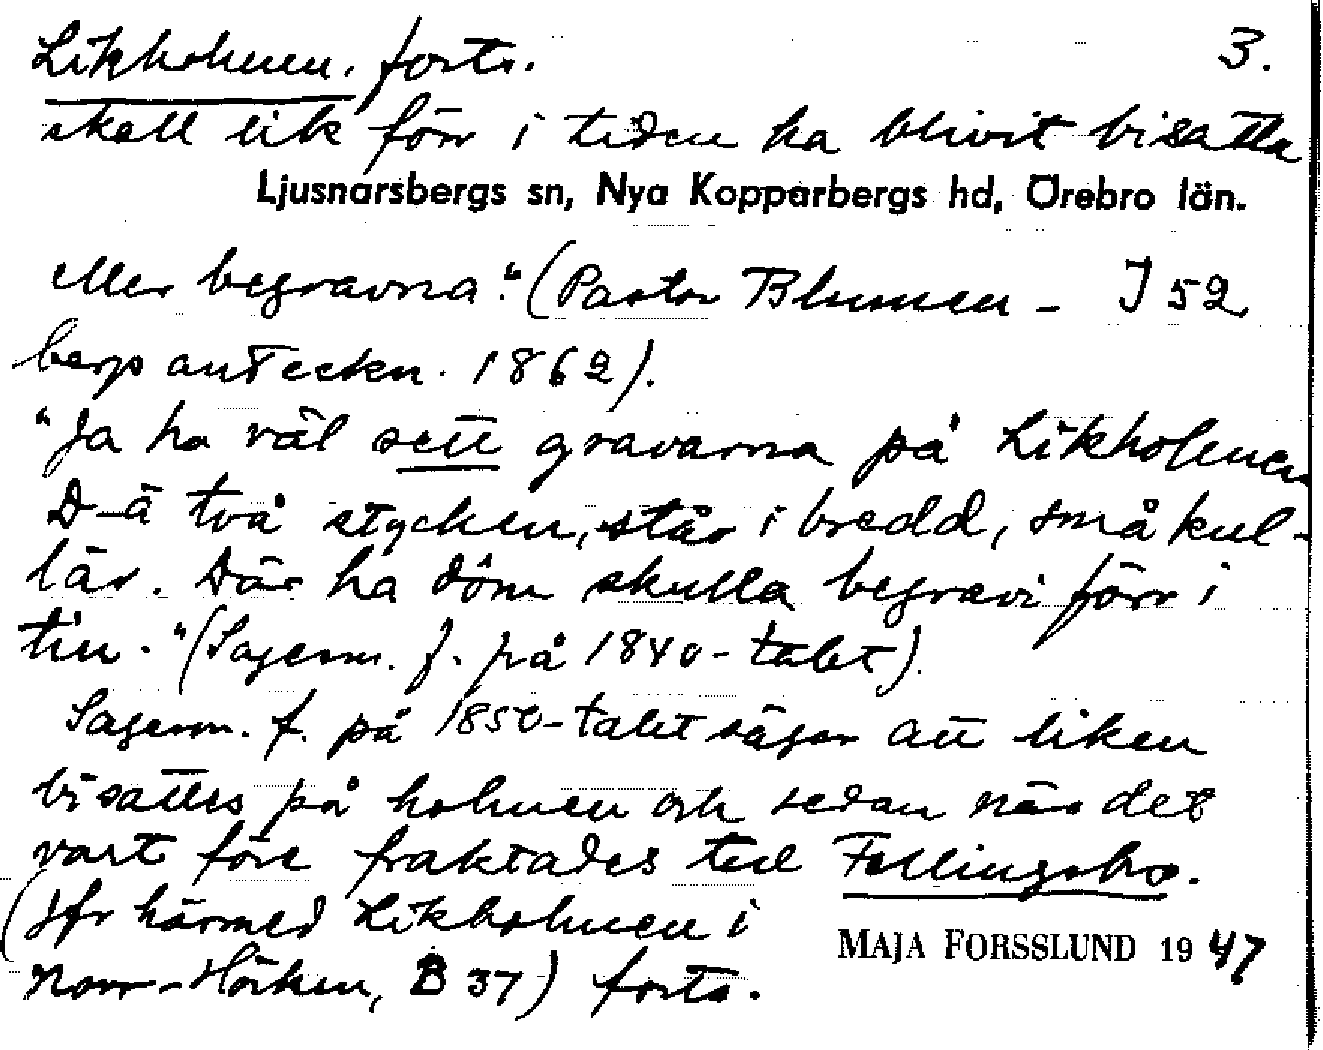 Likholmen. forts. 3.
skall lik förr i tiden ha blivit bisatta
Ljusnarsbergs sn, Nya Kopparbergs hd, Örebro län.
eller begravna." (Pastor Blumen- I 52
bergs anteckn. 1862).
"Ja ha väl sett gravarna på Likholmen
D-ä två stycken, står i bredd, små kul-
lär. Där ha döm skulla begravi förr i
tin." (Sagesm. f. på 1840-talet).
Sagesm. f. på 1850-talet säger att liken
bisattes på holmen och sedan när det
vart före fraktades till Fellingsbro.
(Jfr härmed Likholmen i
Norr-Hörken, B 37) forts.
MAJA FORSSLUND 1947